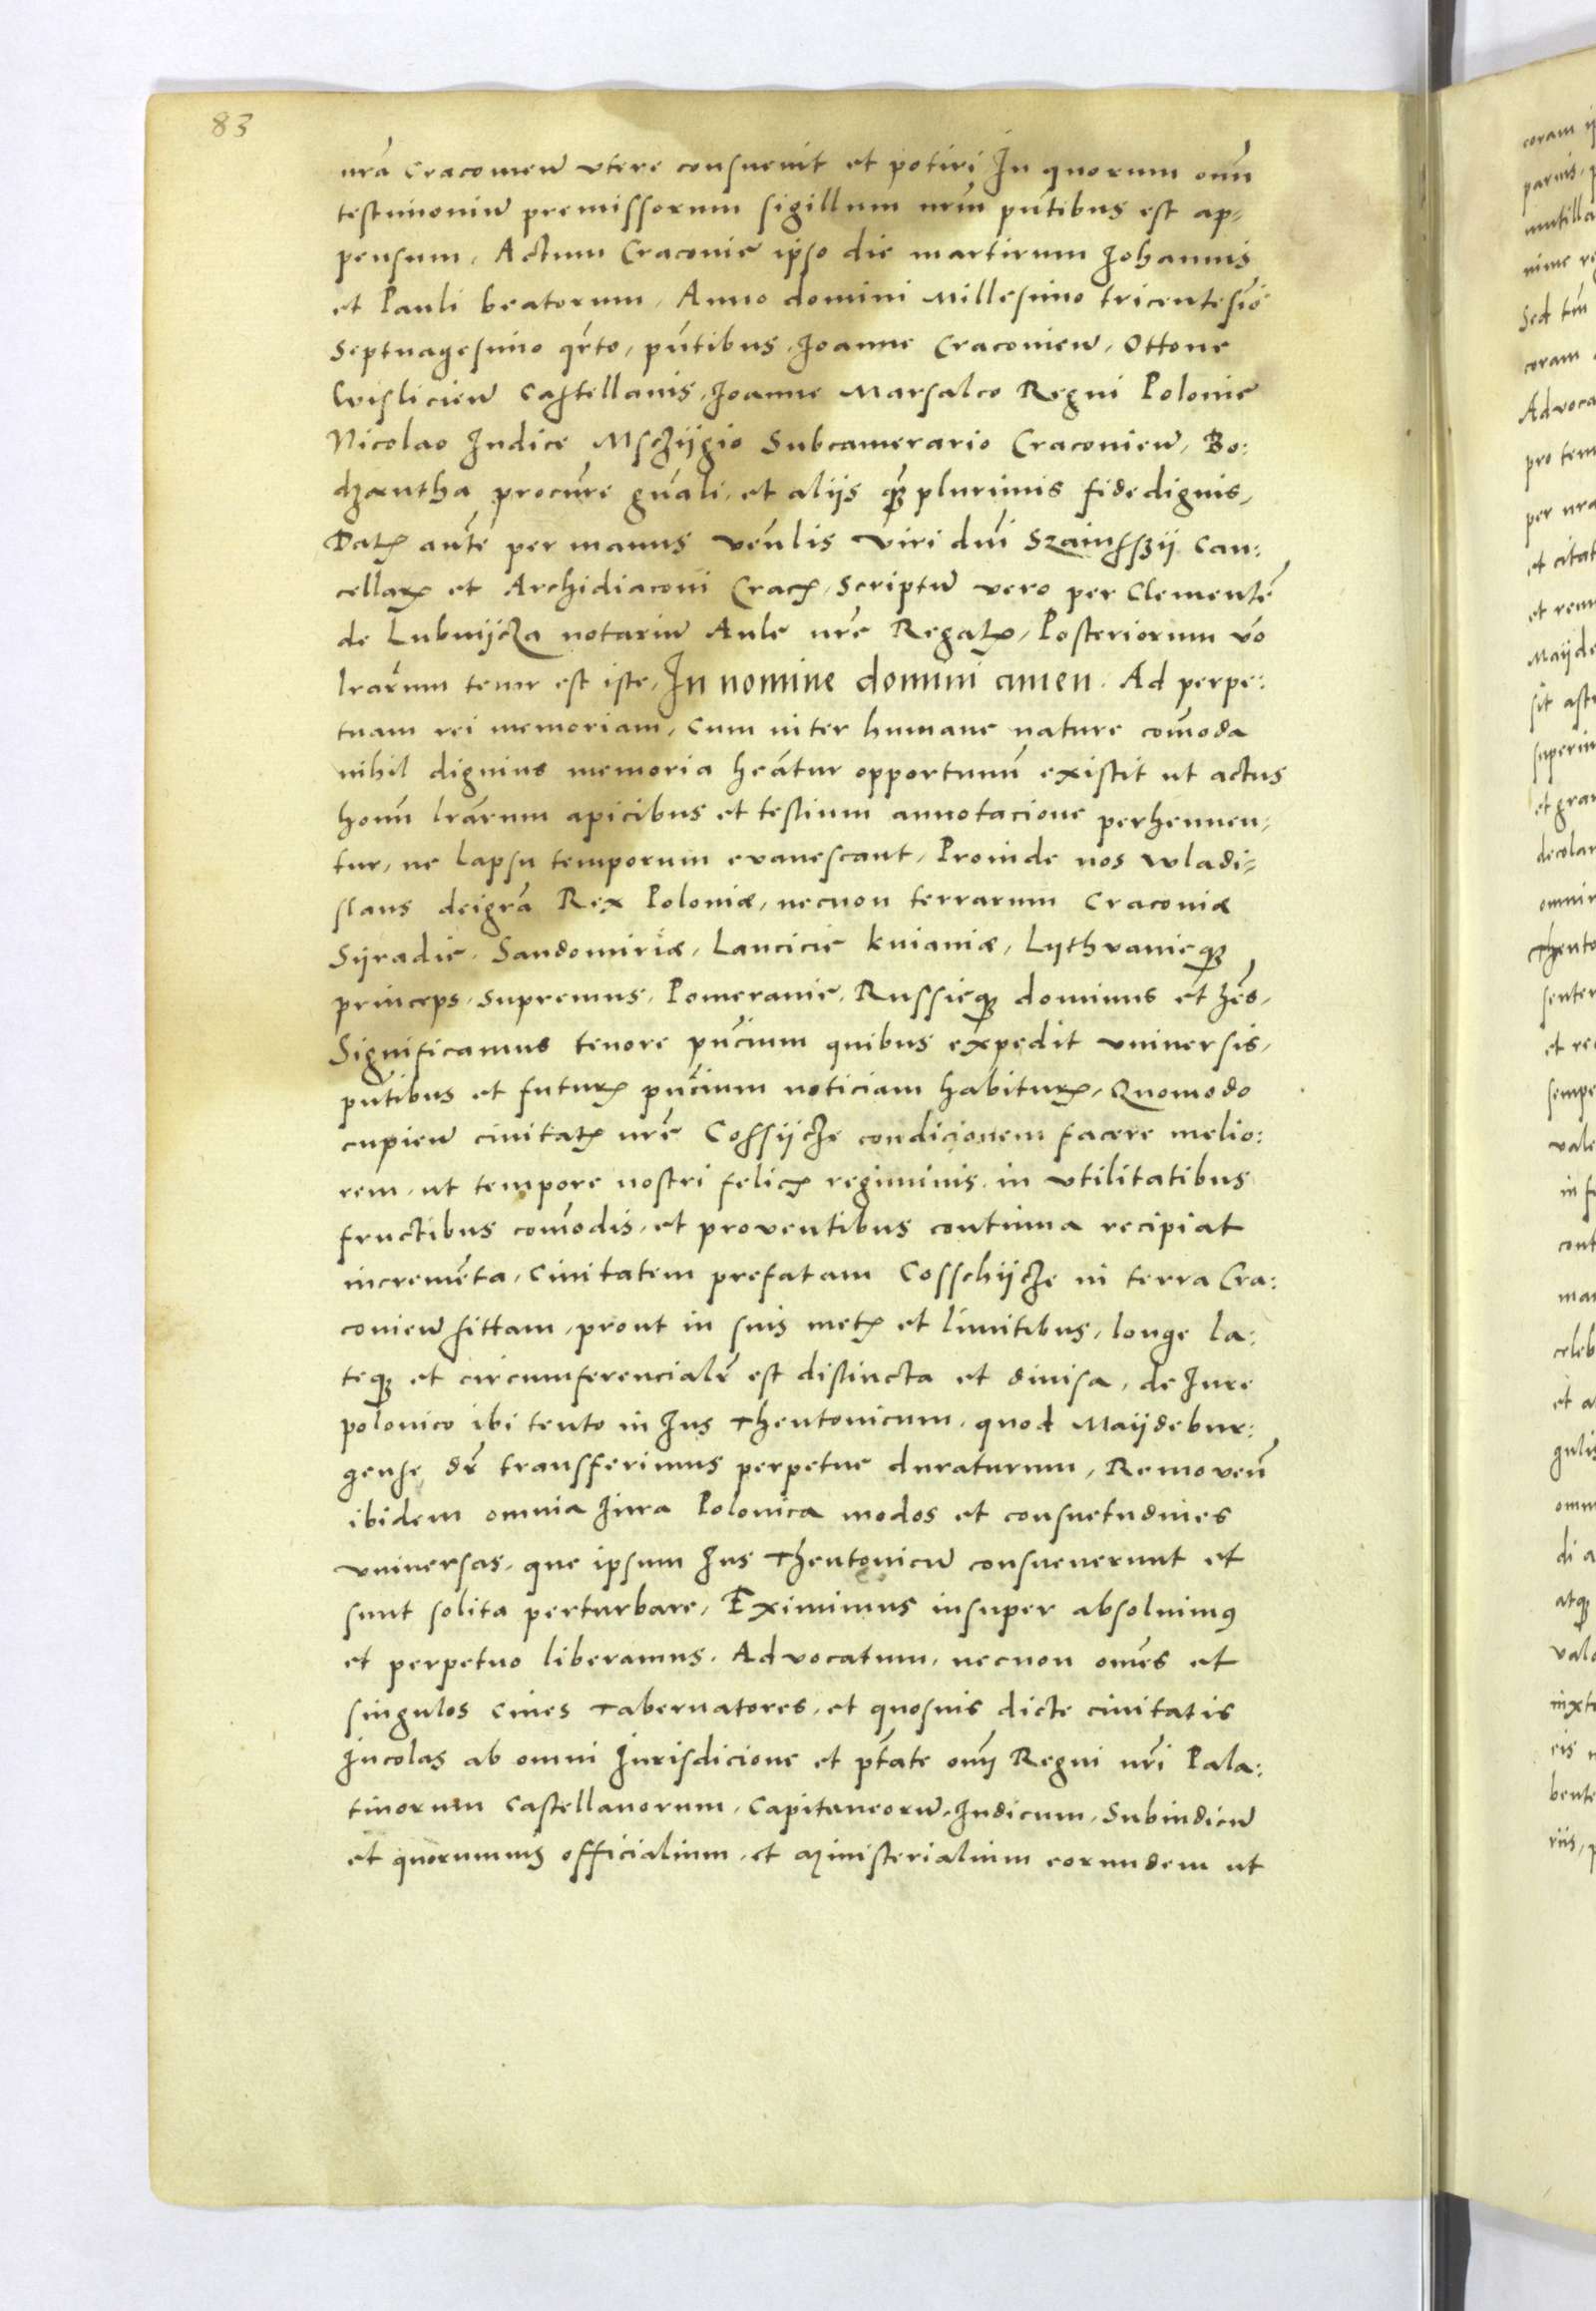 83
nrā Cracovieñ vtere consuevit et potiri In quorum oīm
testimoniū premissorum sigillum nrūm pn̄tibus est ap-
pensum, Actum Cracovie ipso die martirum Johannis
et Pauli beatorum, Anno domini Millesimo tricentesīo
Septuagesimo qr̄to, pn̄tibus, Joanne Cracovieñ, Ottone
Wislicieñ Castellanis, Joanne Marsalco Regni Polonie
Nicolao Judice Msczijgio Subcamerario Cracovieñ, Bo:
dzantha procur̄re gn̄ali, et alijs qȝ plurimis fidedignis,
Datꝭ aūte per manus ven̄lis viri dn̄i Szainsszij Can:
cellarꝭ et Archidiaconi Cracꝭ, Scriptū vero per Clementē
de Lubnijcza notariū Aule nr̄e Regatꝭ, Posteriorum vō
lrār̄um tenor est iste, In nomine domini amen. Ad perpe:
tuam rei memoriam, Cum inter humane nature com̄oda
nihil dignius memoria heātur opportunū existit ut actus
hoīm lrār̄um apicibus et testium annotacione perhennen:
tur, ne lapsu temporum evanescant, Proinde nos Wladi-
slaus deigrā Rex Poloniæ, necnon terrarum Cracoviæ
Syradie, Sandomiriæ, Lancicie kuiaviæ, Lythvanieqȝ
princeps, Supremus, Pomeranie, Russieqȝ dominus et hēs,
Significamus tenore pn̄cium quibus expedit vniversis,
pn̄tibus et futurꝭ pn̄cium noticiam habiturꝭ, Quomodo
cupieñ civitatꝭ nr̄e Cossijcze condicionem facere melio:
rem, ut tempore nostri felicꝭ regiminis, in vtilitatibus
fructibus com̄odis, et proventibus continua recipiat
incremēta, Civitatem prefatam Cosschijcze in terra Cra:
covieñ sittam, prout in suis metꝭ et limitibus, longe la:
teqȝ et circumferencialr̄ est distincta et divisa, de Jure
polonico ibi tento in Jus Theutonicum, quod Maijdebur:
gense dr̄ transferimus perpetue duraturum, Removeñ
ibidem omnia Jura Polonica modos et consuetudines
vniversas, que ipsum Jus Theutonicū consueverunt et
sunt solita perturbare, Eximimus insuper absolvimꝰ
et perpetuo liberamus, Advocatum, necnon om̄es et
singulos Cives Tabernatores, et quosvis dicte civitatis
Incolas ab omni Jurisdicione et ptāte om̄j Regni nr̄i Pala:
tinorum Castellanorum, Capitaneorū, Judicum, Subiudicū
et quorumvis officialium, et ministerialium eorundem ut